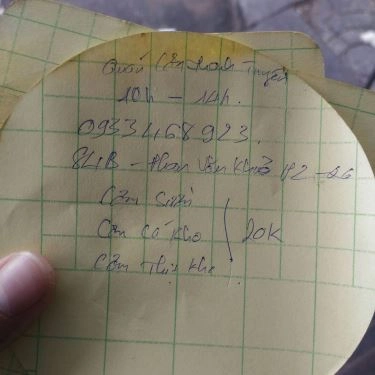 Quán Cơm Thanh Tuyền
10h - 14h.
0933468923.
84B - Phan Văn Khỏe P2 - Q6
Cơm Sườn
Cơm Cá Kho 20K
Cơm Thịt Kho